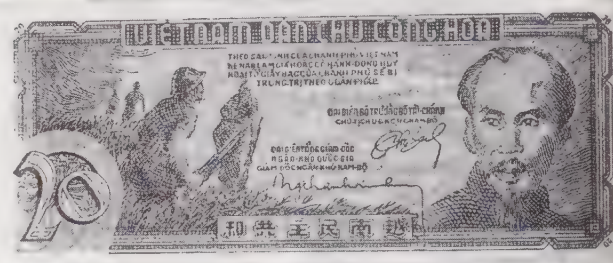 VIỆT NAM DÂN CHỦ CỘNG HOÀ
THEO SẮC LỆNH CỦA CHÁNH PHỦ VIỆT NAM
KẺ NÀO LÀM GIẢ HOẶC CÓ HÀNH ĐỘNG HỦY
HOẠI TỜ GIẤY BẠC CỦA CHÁNH PHỦ SẼ BỊ
TRỪNG TRỊ THEO QUÂN PHÁP.
ĐẠI DIỆN BỘ TRƯỞNG BỘ TÀI CHÁNH
CHỦ TỊCH U.B.K.C.H.C NAM BỘ
ĐẠI DIỆN TỔNG GIÁM ĐỐC
NGÂN KHỐ QUỐC GIA
GIÁM ĐỐC NGÂN KHỐ NAM BỘ
20
和共主民南越